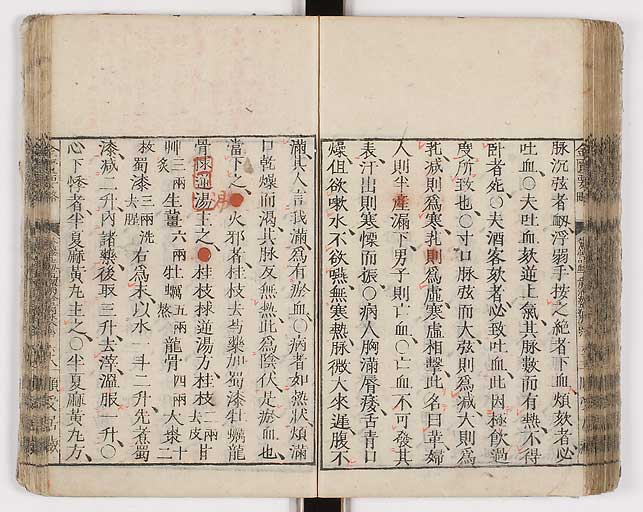 脉沉弦者衂浮弱手按之絶者下血煩欬者必
吐血○夫吐血欬逆上氣其脉數而有熱不得
臥者死○夫酒客欬者必致吐血此因極飲過
度所致也○寸口脉弦而大弦則爲减大則爲
芤减則爲寒芤則爲虛寒虛相擊此名曰革婦
人則半產漏下男子則亡血○亡血不可發其
表汗出則寒慄而振○病人胸滿唇痿舌青口
燥但欲嗽水不欲嚥無寒熱脉微大來遲腹不
滿其人言我滿爲有瘀血○病者如熱狀煩滿
口乾燥而渴其脉反無熱此爲陰伏是瘀血也
當下之●火邪者桂枝去芍藥加蜀漆牡蠣龍
骨救逆湯主之●桂枝救逆湯方桂枝三兩去皮甘
艸三兩炙生薑六兩牡蠣五兩熬龍骨四兩大棗十二
枚蜀漆三兩洗去腥右爲末以水一斗二升先煮蜀
漆减二升內諸藥後取三升去滓溫服一升○
心下悸者半夏麻黃丸主之○半夏麻黃丸方